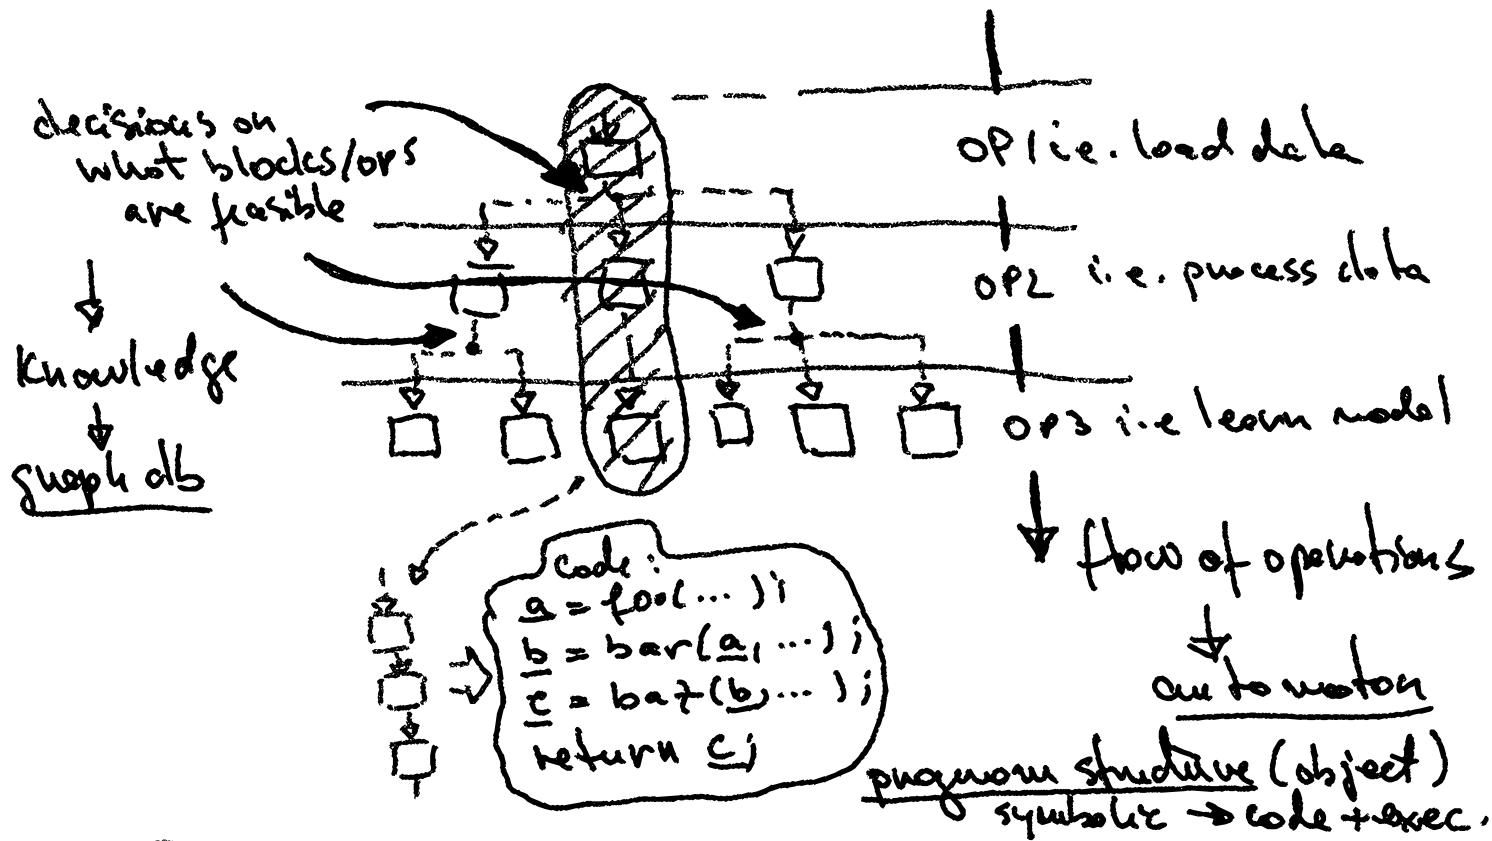 decisions on
what blocks/ops
are feasible
Knowledge
graph db
OP1 i.e. load data
OP2 i.e. process data
OP3 i.e learn model
flow of operations
automaton
program structure (object)
symbolic → code + exec.
code:
a = foo(...);
b = bar(a, ...);
c = baz(b, ...);
return c;